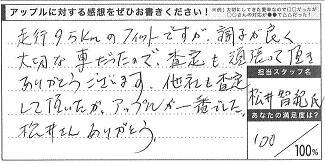 アップルに対する感想をぜひお書きください！
※例）大切にしてきた愛車なので□□だったが
○○さんの対応が●●で△△だった！
走行9.5万kmのフィットですが、調子が良く
大切な車だったので、査定も頑張って頂き
ありがとうございます。他社も査定
して頂いたが、アップルが一番でした。
松井さんありがとう。
担当スタッフ名
松井智範氏
あなたの満足度は？
100
/100%